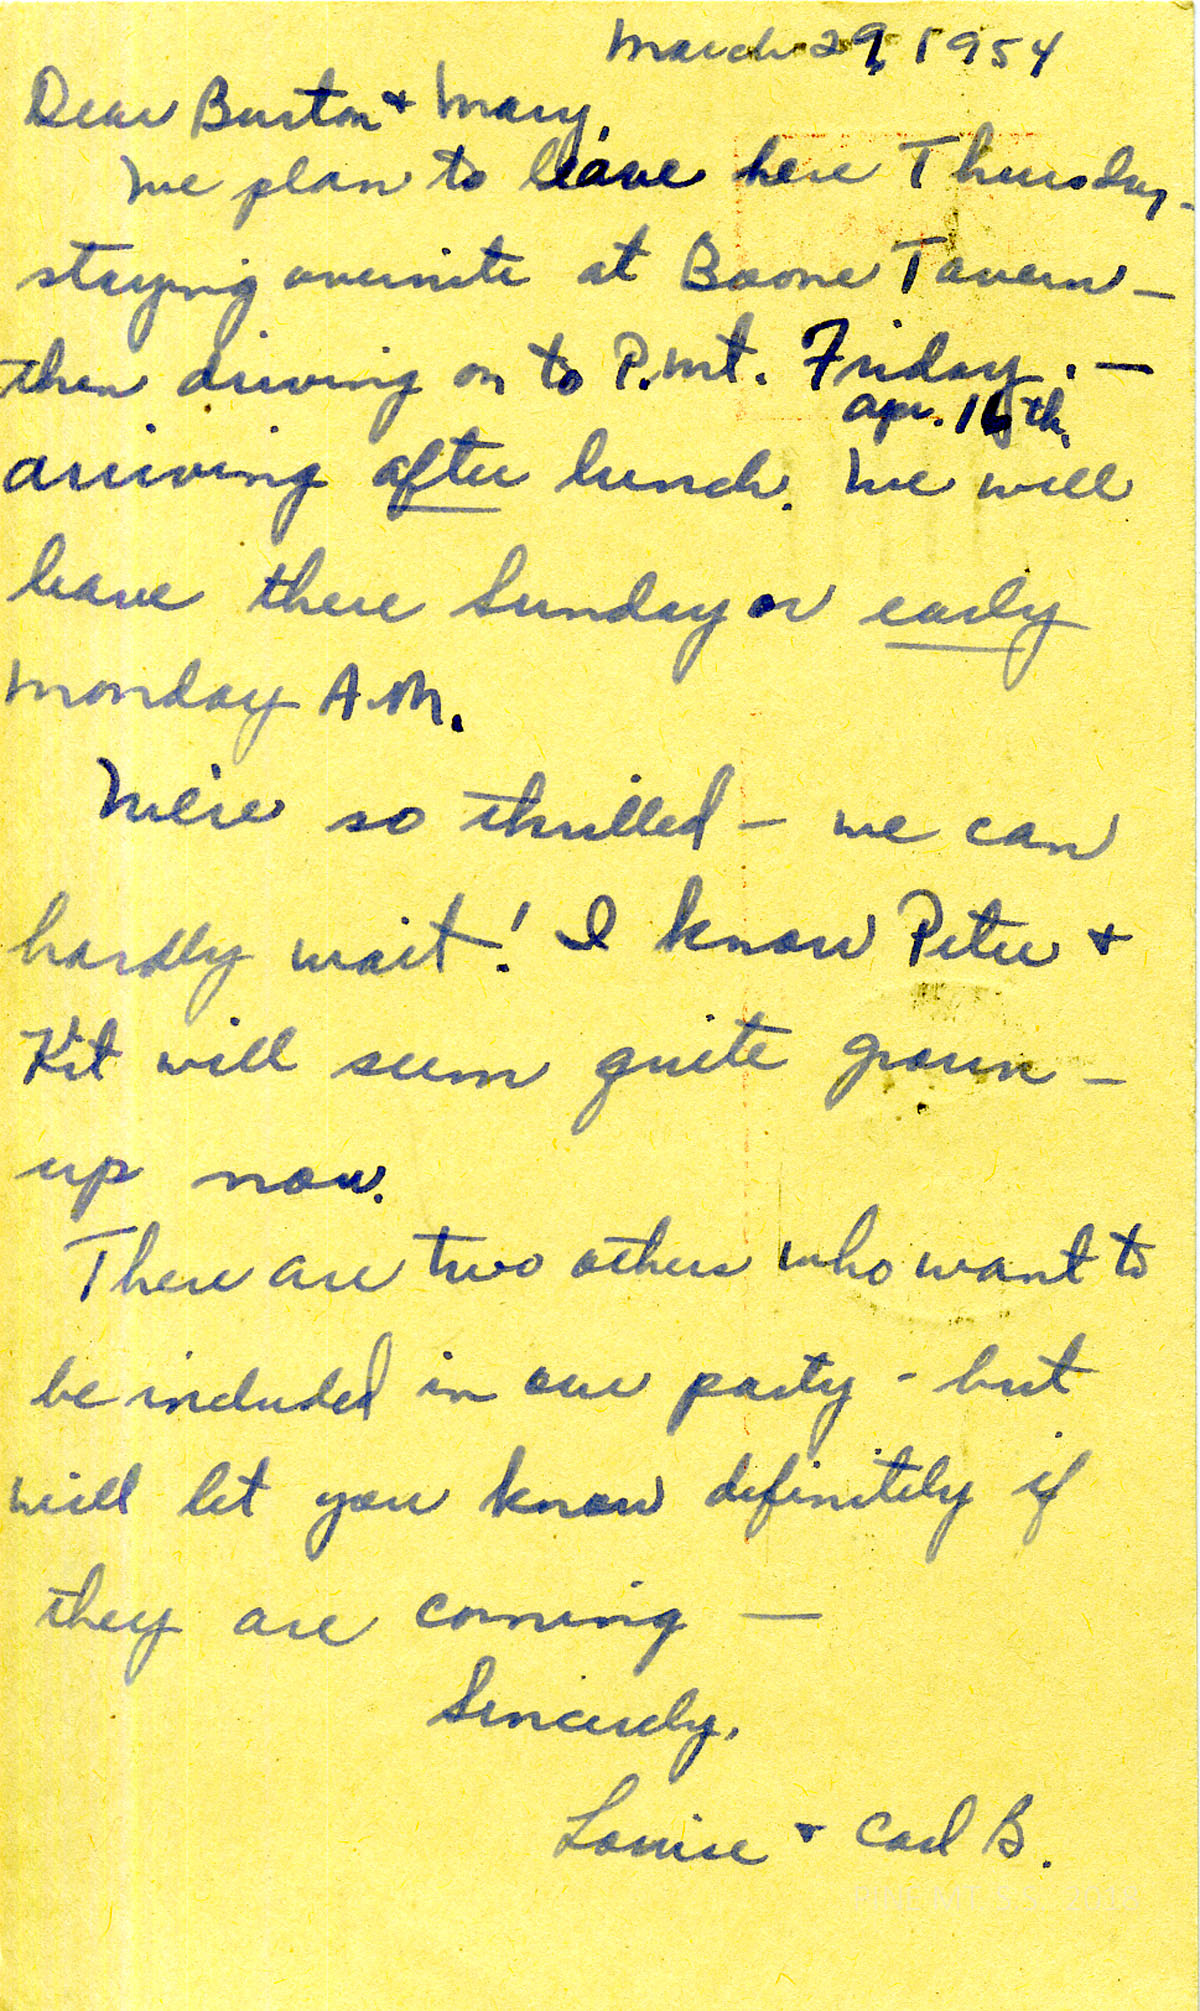 March 29, 1954
Dear Burton + Mary,
We plan to leave here Thursday -
staying overnite at Boone Tavern -
then driving on to P.Mt. Friday. -
Apr. 16th,
arriving after lunch. We will
leave there Sunday or early
Monday A.M.
We're so thrilled - we can
hardly wait! I know Peter +
Kit will seem quite grown -
up now.
There are two others who want to
be included in our party - but
will let you know definitely if
they are coming -
Sincerely,
Louise + Carl B.
PINE MT. S.S. 2018